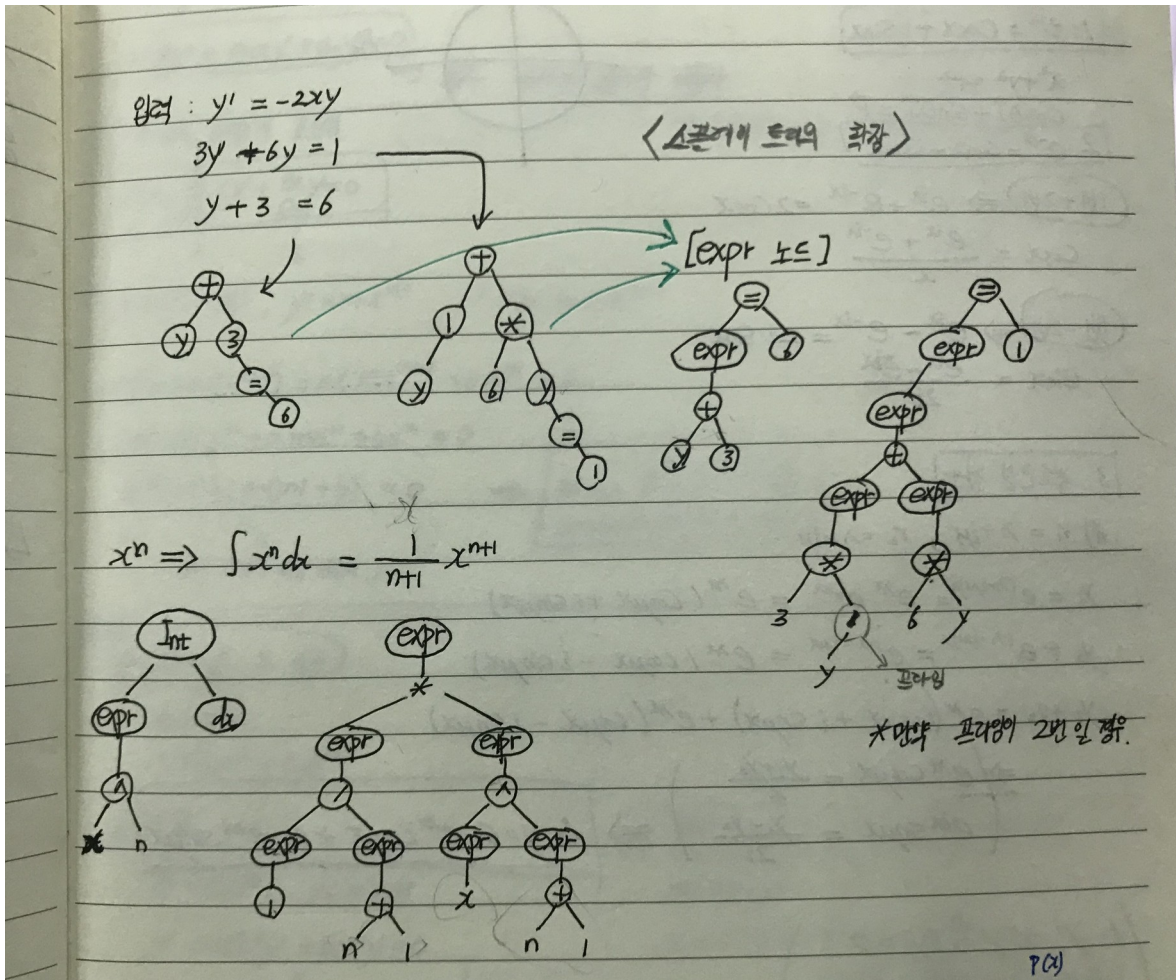 입력 : y' = -2xy
3y' + 6y = 1
y + 3 = 6
<스플레이 트리의 확장>
[expr 노드]
+
y 3
=
6
+
' *
y 6 y
=
1
=
expr 6
+
y 3
=
expr 1
expr
+
expr expr
* *
3 ' 6 y
y 프라임
*만약 프라임이 2번 일 경우.
xⁿ => ∫xⁿdx = 1/(n+1) xⁿ⁺¹
Int
expr dx
^
x n
expr
*
expr expr
/ ^
expr expr expr expr
1 + x +
n 1 n 1
P(x)